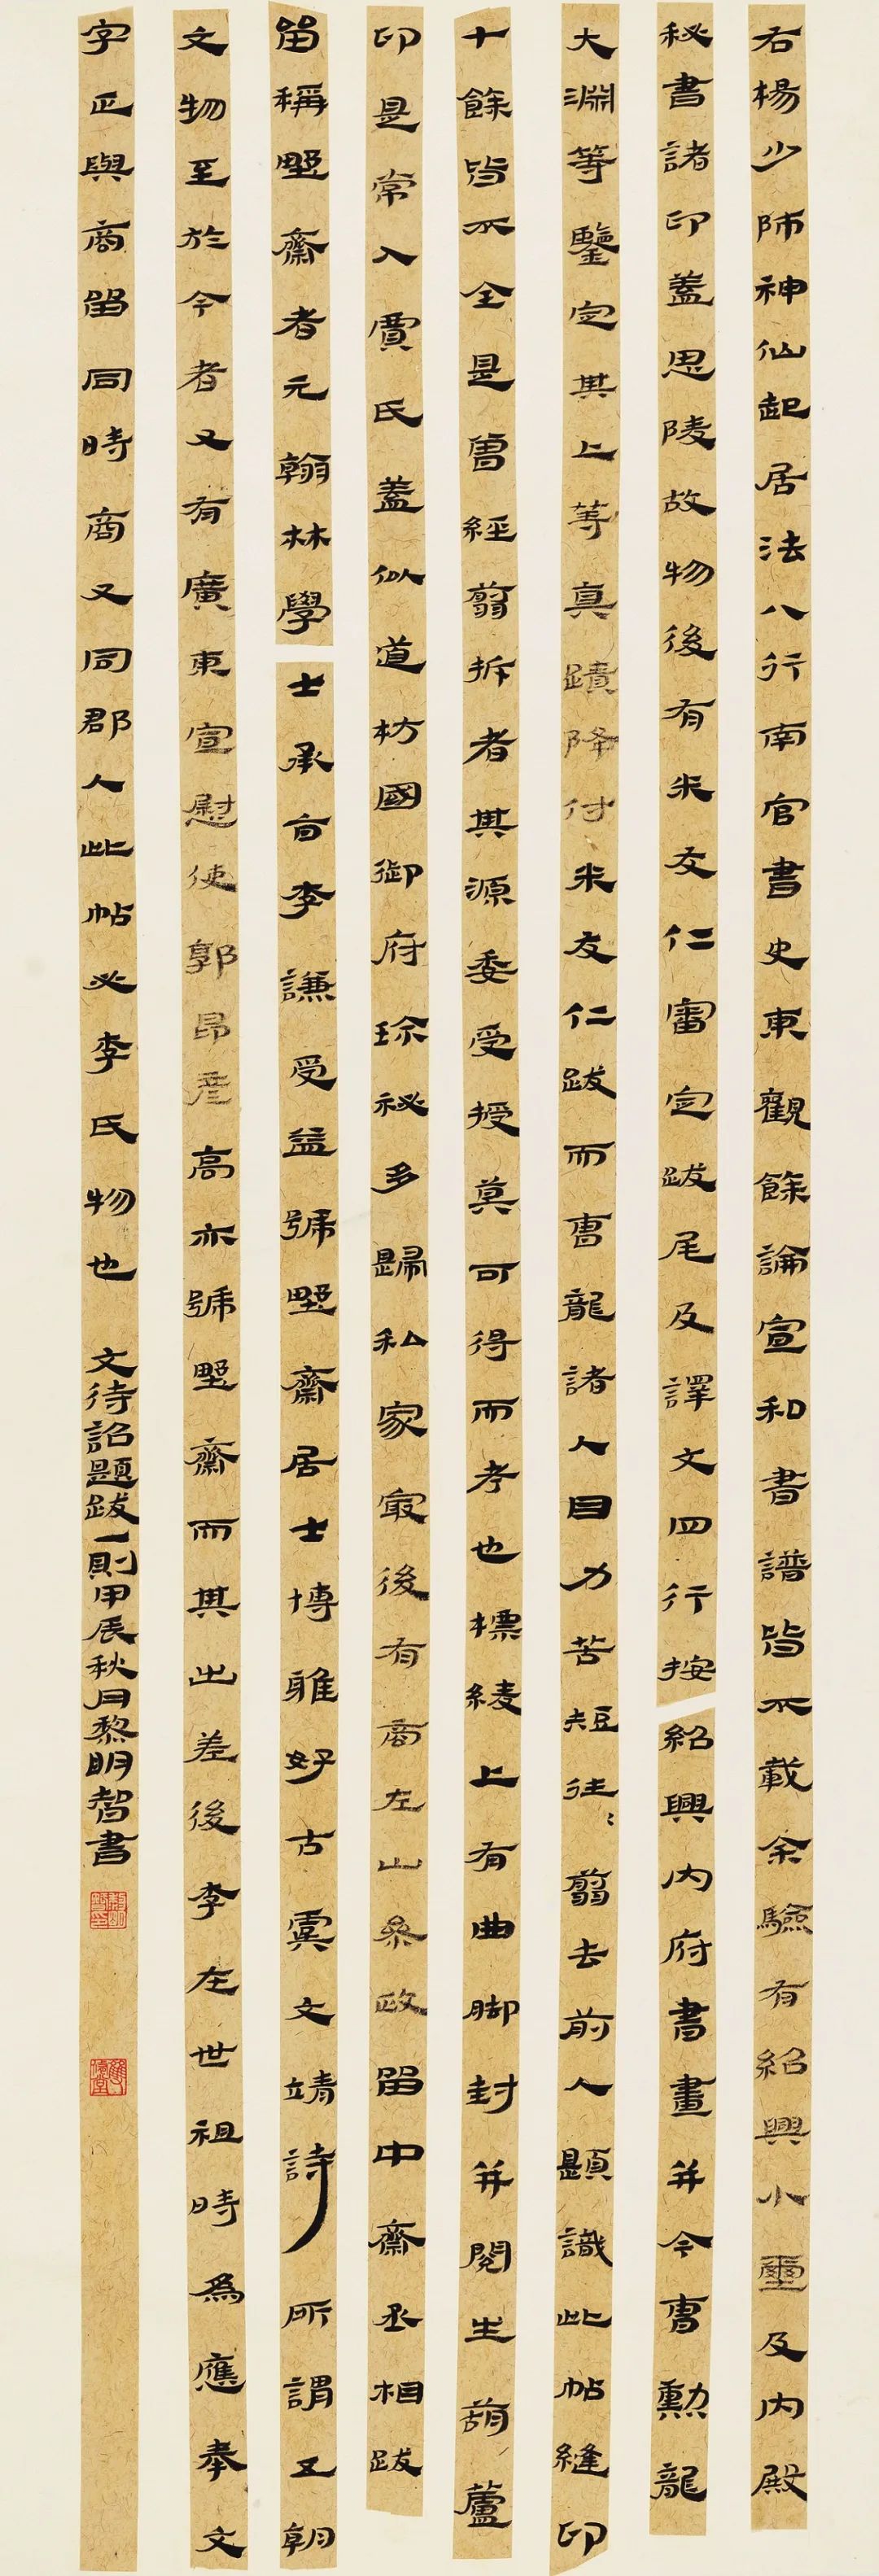 右楊少師神仙起居法八行南宮書史東觀餘論宣和書譜皆不載余驗有紹興小璽及內殿
秘書諸印蓋思陵故物後有米友仁審定跋尾及譯文四行按紹興內府書畫并令曹勳龍
大淵等鑒定其上等真蹟降付米友仁跋而曹龍諸人目力苦短往〻翦去前人題識此帖縫印
十餘皆不全是曾經翦拆者其源委受授莫可得而考也標綾上有曲脚封并閱生葫蘆
印是常入賈氏蓋似道枋國御府珍祕多歸私家寂後有商左山參政留中齋丞相跋
留稱野齋者元翰林學士承旨李謙受益號野齋居士博雅好古虞文靖詩所謂五朝
文物至於今者又有廣東宣慰使郭昂彥高亦號野齋而其出差後李在世祖時為應奉文
字正與商留同時商又同郡人此帖必李氏物也 文待詔題跋一則甲辰秋月黎明智書